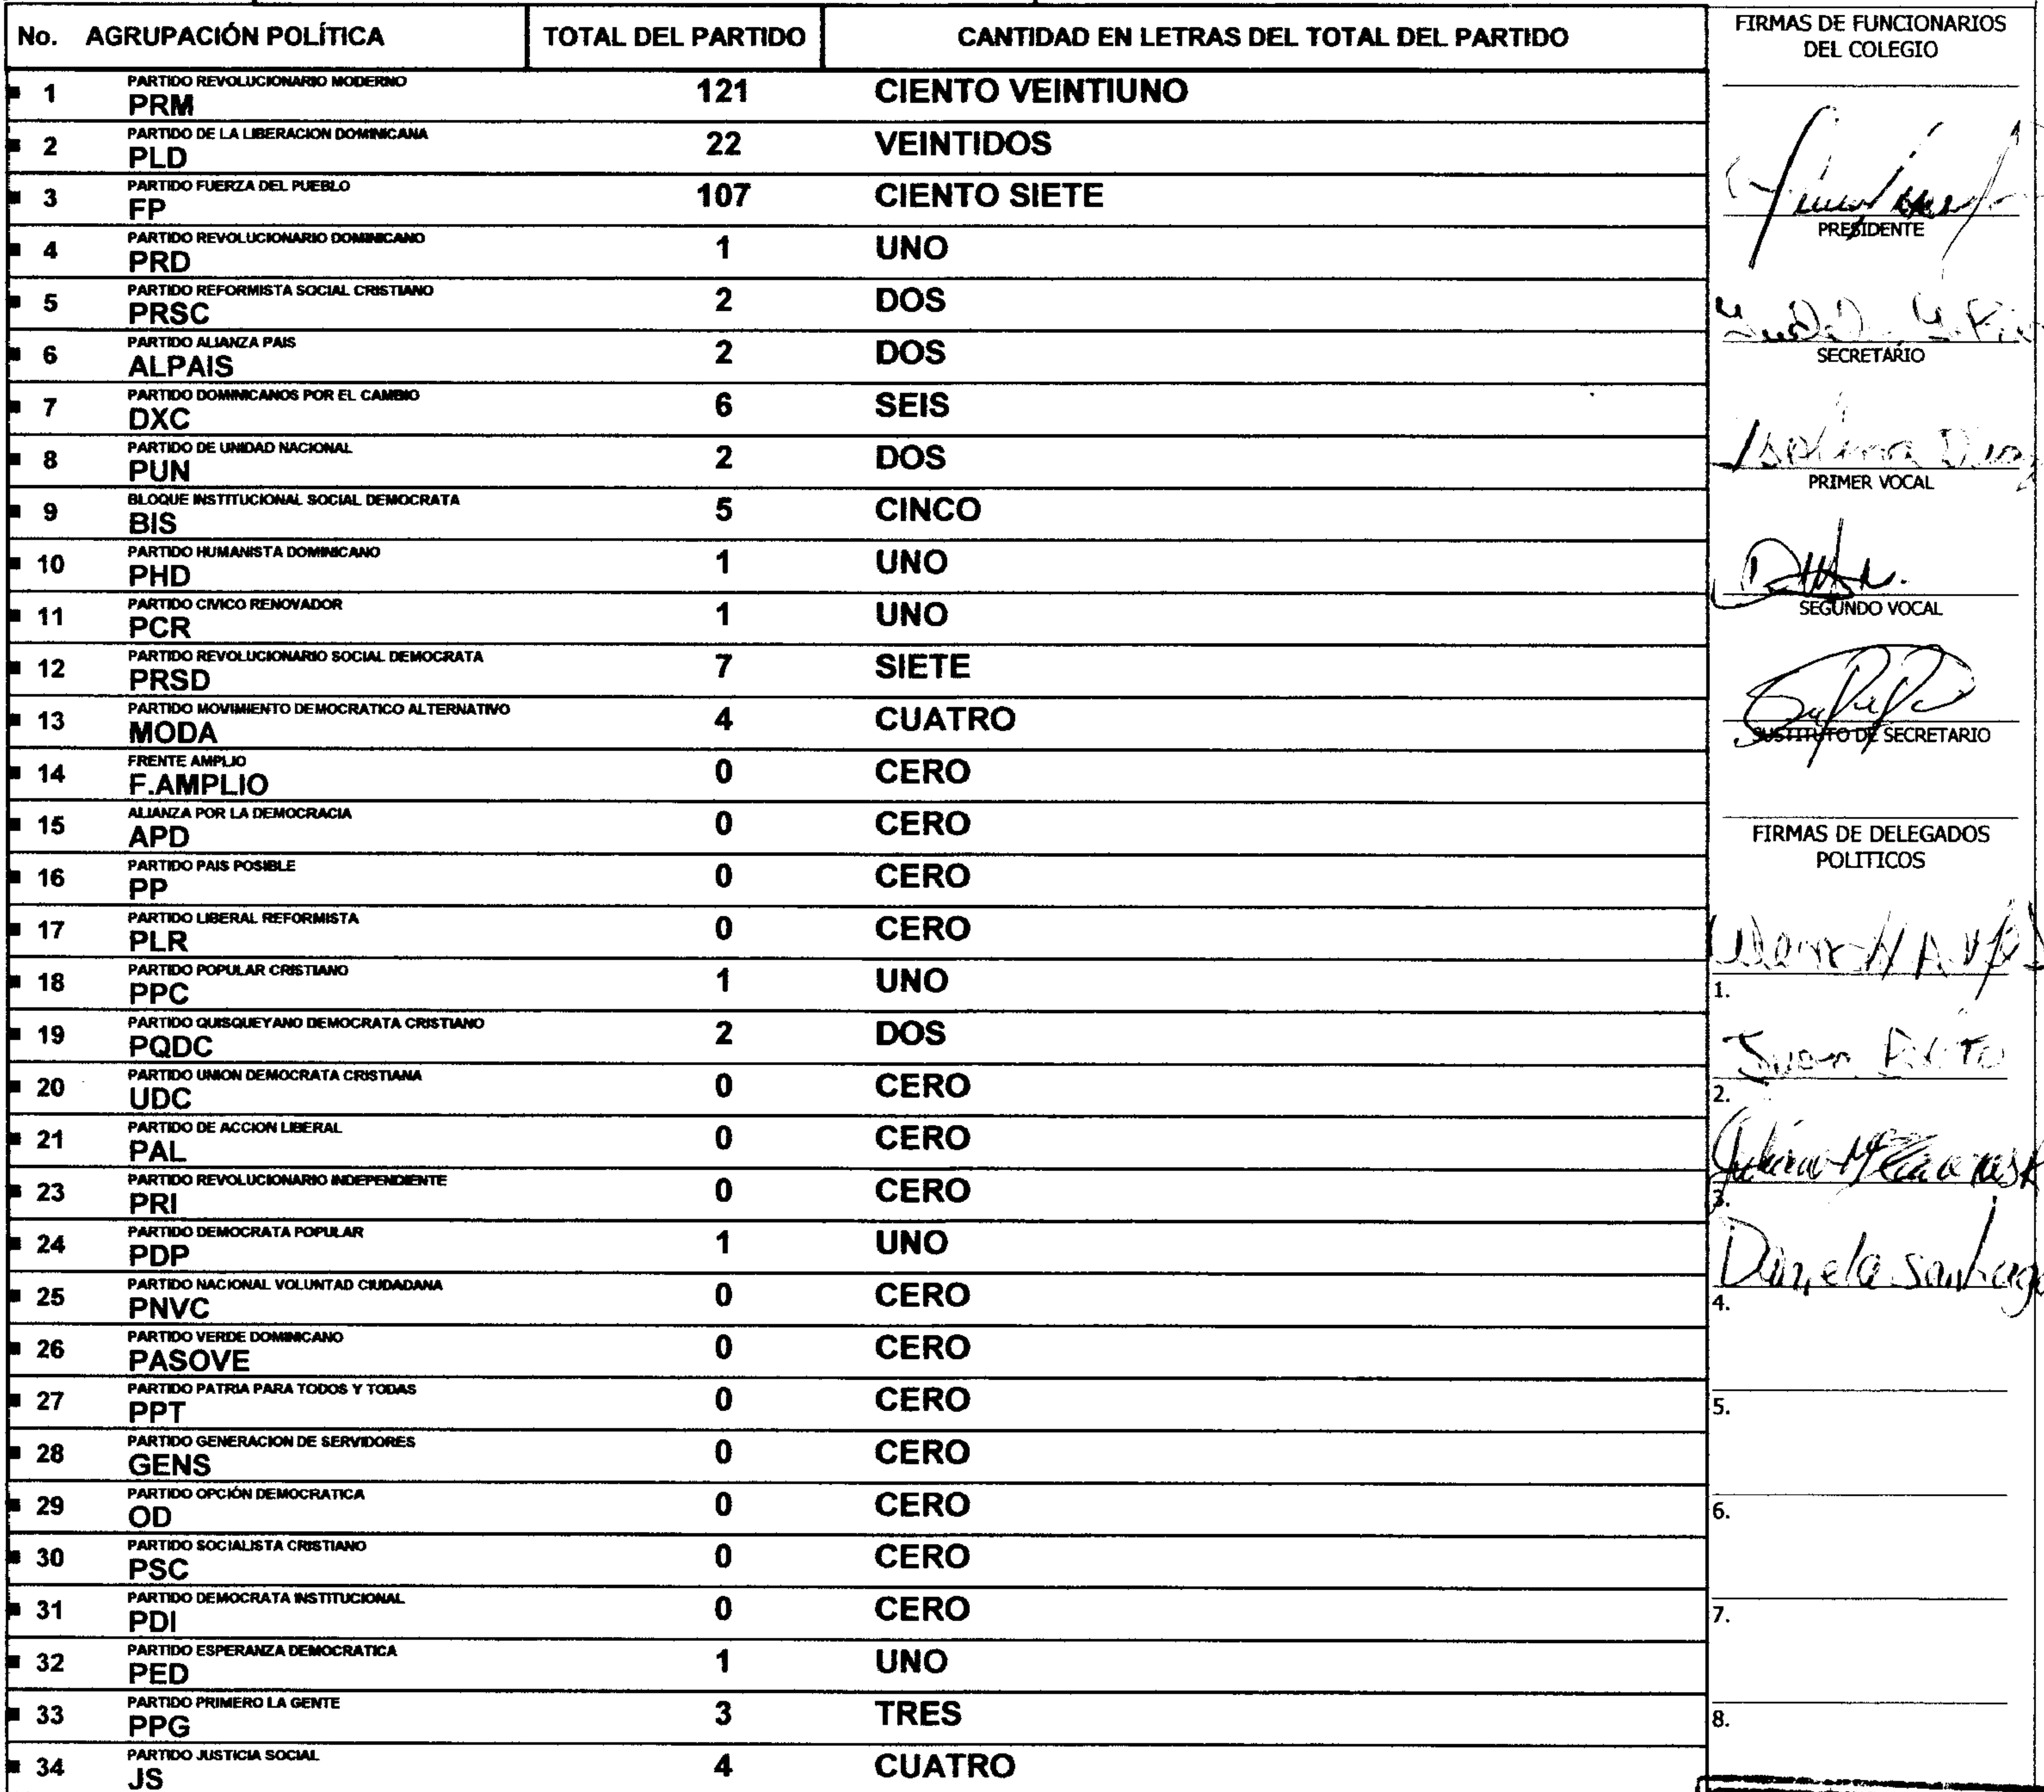 No. AGRUPACIÓN POLÍTICA TOTAL DEL PARTIDO CANTIDAD EN LETRAS DEL TOTAL DEL PARTIDO
1 PARTIDO REVOLUCIONARIO MODERNO
PRM 121 CIENTO VEINTIUNO
2 PARTIDO DE LA LIBERACION DOMINICANA
PLD 22 VEINTIDOS
3 PARTIDO FUERZA DEL PUEBLO
FP 107 CIENTO SIETE
4 PARTIDO REVOLUCIONARIO DOMINICANO
PRD 1 UNO
5 PARTIDO REFORMISTA SOCIAL CRISTIANO
PRSC 2 DOS
6 PARTIDO ALIANZA PAIS
ALPAIS 2 DOS
7 PARTIDO DOMINICANOS POR EL CAMBIO
DXC 6 SEIS
8 PARTIDO DE UNIDAD NACIONAL
PUN 2 DOS
9 BLOQUE INSTITUCIONAL SOCIAL DEMOCRATA
BIS 5 CINCO
10 PARTIDO HUMANISTA DOMINICANO
PHD 1 UNO
11 PARTIDO CIVICO RENOVADOR
PCR 1 UNO
12 PARTIDO REVOLUCIONARIO SOCIAL DEMOCRATA
PRSD 7 SIETE
13 PARTIDO MOVIMIENTO DEMOCRATICO ALTERNATIVO
MODA 4 CUATRO
14 FRENTE AMPLIO
F.AMPLIO 0 CERO
15 ALIANZA POR LA DEMOCRACIA
APD 0 CERO
16 PARTIDO PAIS POSIBLE
PP 0 CERO
17 PARTIDO LIBERAL REFORMISTA
PLR 0 CERO
18 PARTIDO POPULAR CRISTIANO
PPC 1 UNO
19 PARTIDO QUISQUEYANO DEMOCRATA CRISTIANO
PQDC 2 DOS
20 PARTIDO UNION DEMOCRATA CRISTIANA
UDC 0 CERO
21 PARTIDO DE ACCION LIBERAL
PAL 0 CERO
23 PARTIDO REVOLUCIONARIO INDEPENDIENTE
PRI 0 CERO
24 PARTIDO DEMOCRATA POPULAR
PDP 1 UNO
25 PARTIDO NACIONAL VOLUNTAD CIUDADANA
PNVC 0 CERO
26 PARTIDO VERDE DOMINICANO
PASOVE 0 CERO
27 PARTIDO PATRIA PARA TODOS Y TODAS
PPT 0 CERO
28 PARTIDO GENERACION DE SERVIDORES
GENS 0 CERO
29 PARTIDO OPCIÓN DEMOCRATICA
OD 0 CERO
30 PARTIDO SOCIALISTA CRISTIANO
PSC 0 CERO
31 PARTIDO DEMOCRATA INSTITUCIONAL
PDI 0 CERO
32 PARTIDO ESPERANZA DEMOCRATICA
PED 1 UNO
33 PARTIDO PRIMERO LA GENTE
PPG 3 TRES
34 PARTIDO JUSTICIA SOCIAL
JS 4 CUATRO
FIRMAS DE FUNCIONARIOS
DEL COLEGIO
PRESIDENTE
SECRETARIO
Diaz
PRIMER VOCAL
SEGUNDO VOCAL
SUSTITUTO DE SECRETARIO
FIRMAS DE DELEGADOS
POLITICOS
1.
Juan
2.
3.
Daniela Santiago
4.
5.
6.
7.
8.